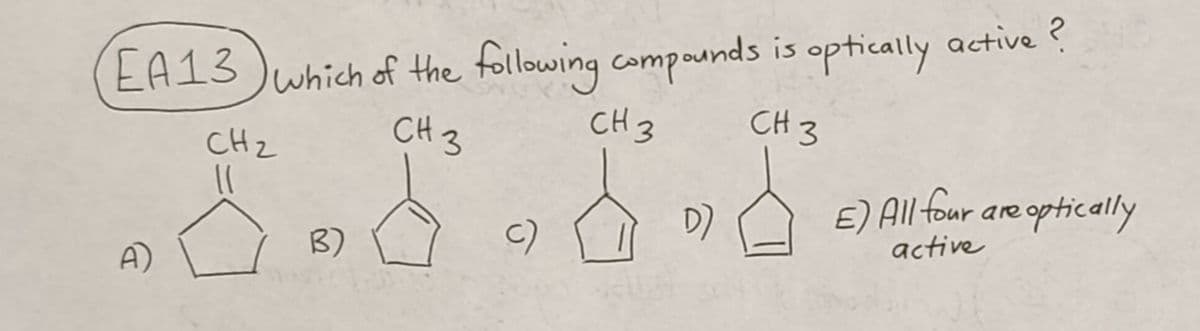 EA13 which of the following compounds is optically active ?
CH2 CH3 CH3 CH3
A) B) C) D) E) All four are optically
active